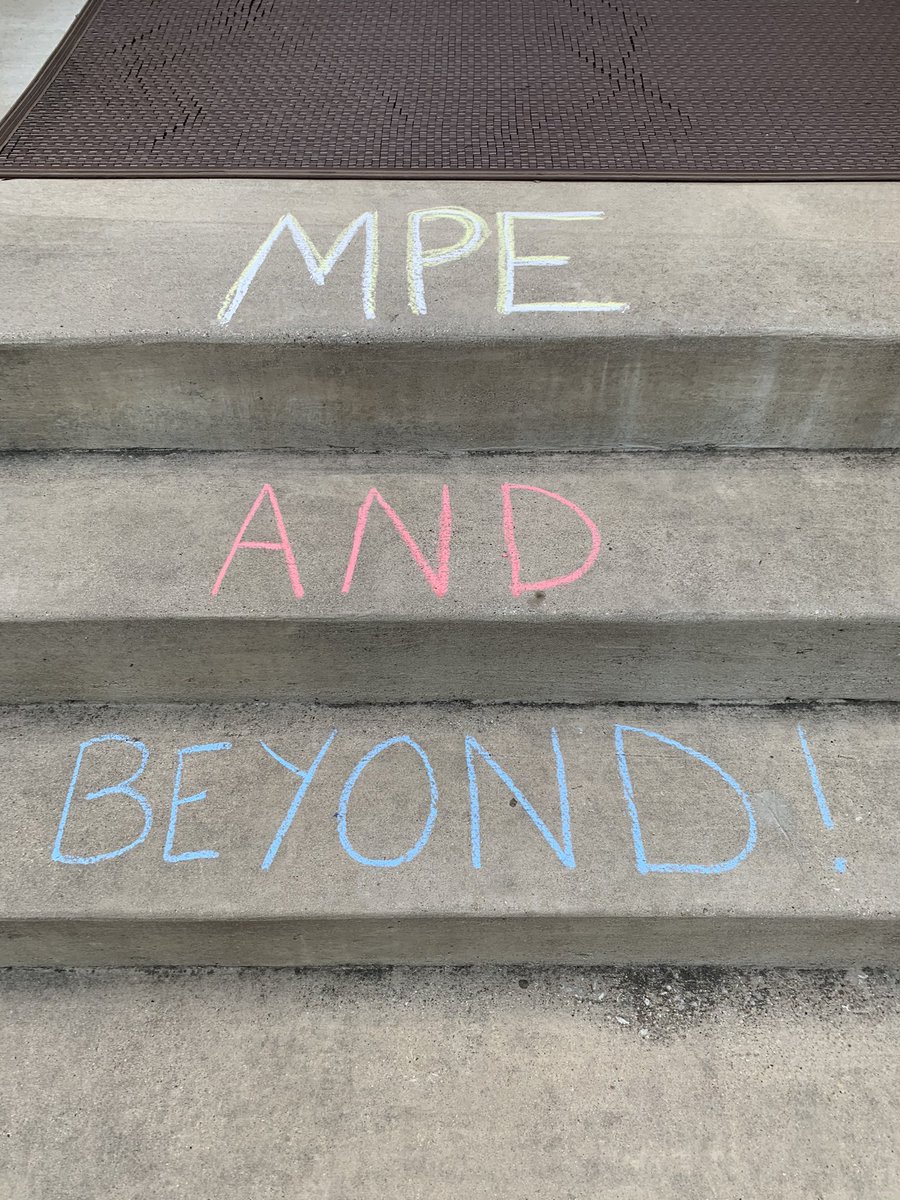 MPE
AND
BEYOND!